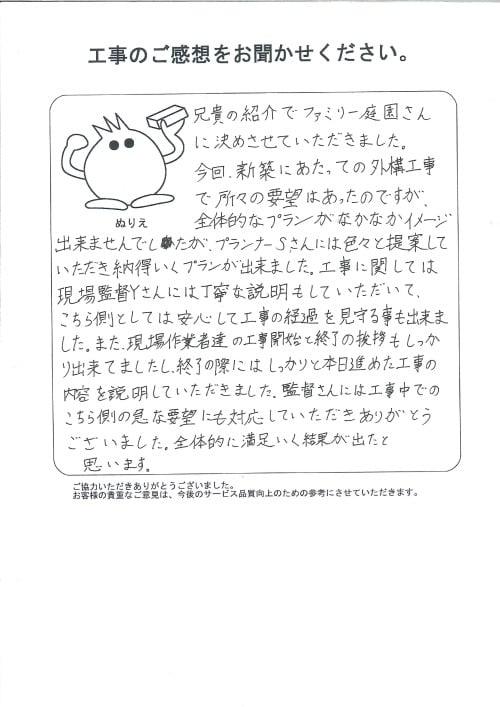 工事のご感想をお聞かせください。
兄貴の紹介でファミリー庭園さん
に決めさせていただきました。
今回、新築にあたっての外構工事
で所々の要望はあったのですが、
全体的なプランがなかなかイメージ
ぬりえ
出来ませんでしたが、プランナーSさんには色々と提案して
いただき納得いくプランが出来ました。工事に関しては
現場監督Yさんには丁寧な説明もしていただいて、
こちら側としては安心して工事の経過を見守る事も出来ま
した。また、現場作業者達の工事開始と終了の挨拶もしっか
り出来てましたし、終了の際にはしっかりと本日進めた工事の
内容を説明していただきました。監督さんには工事中での
こちら側の急な要望にも対応していただきありがとう
ございました。全体的に満足いく結果が出たと
思います。
ご協力いただきありがとうございました。
お客様の貴重なご意見は、今後のサービス品質向上のための参考にさせていただきます。